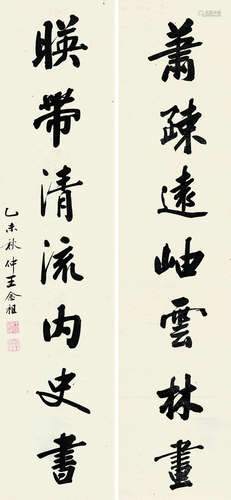 蕭疎遠岫雲林畫
暎帶清流內史書
乙未秋仲王余祖